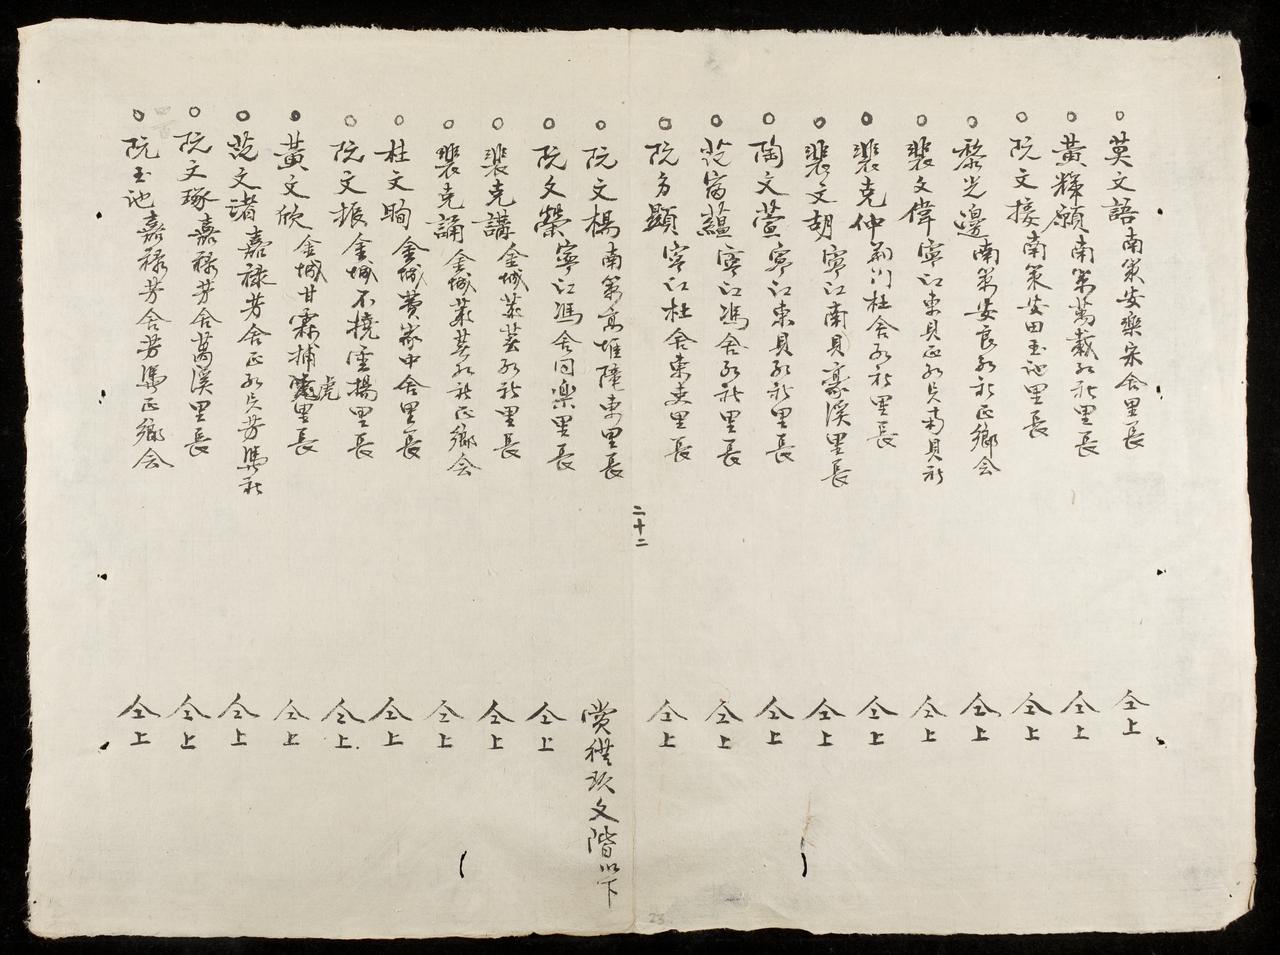 ○莫文語南策安樂宋舍里長 仝上
○黄釋願南策萬載社里長 仝上
○阮文接南策安田玉池里長 仝上
○黎光邊南策安良社正鄉会 仝上
○裴文偉寧江東貝正南貝社 仝上
○裴克仲荊門杜舍社里長 仝上
○裴文胡寧江南貝豪溪里長 仝上
○陶文萱寧江東貝社里長 仝上
○范富蘊寧江馮舍社里長 仝上
○阮方顯寧江杜舍東里長 仝上
○阮文楊南策堆東里長 赏授玖文階以下
二十二
○阮文榮寧江馮舍同樂里長 仝上
○裴克講金城社里長 仝上
○裴克誦金城社正鄉会 仝上
○杜文眴金城費家中舍里長 仝上
○阮文振金城不撓楊里長 仝上
○黄文欣金城甘霖捕虎里長 仝上
○范文渚嘉禄芳舍正芳馮社 仝上
○阮文琢嘉禄芳舍萬溪里長 仝上
○阮玉池嘉禄芳舍芳馮正鄉会 仝上
23